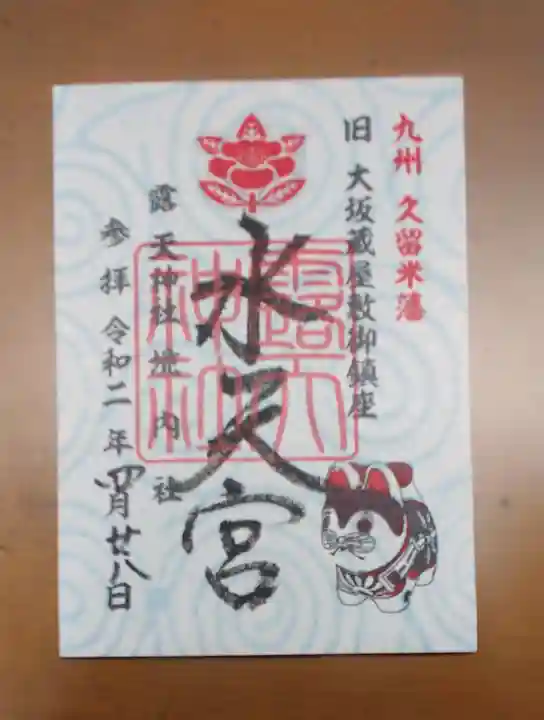 九州 久留米藩
旧 大坂蔵屋敷御鎮座
水天宮
露天神社
露天神社境内社
参拝 令和二年四月廿八日